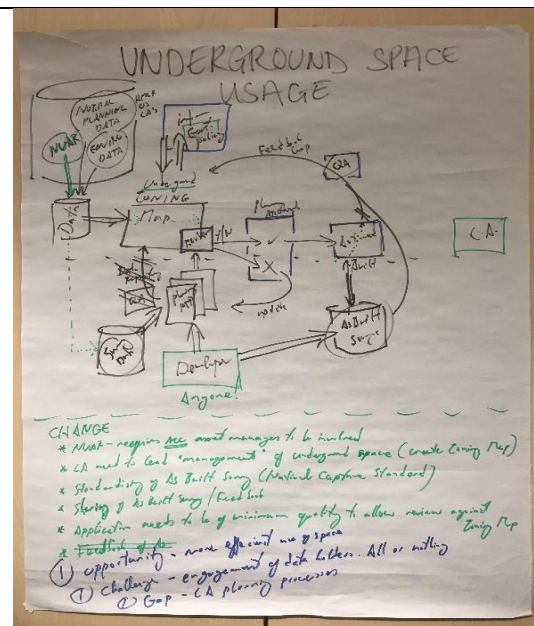 UNDERGROUND SPACE
USAGE
NORMAL
PLANNING
DATA
NUAR
ENVIRO
DATA
Data
Govt
Policy
ZONING
Map
Y/N
Feedback
Loop
Q&A
LA
As Built
Survey
Developer
Anyone!
CHANGE
* NUAR - requires ALL asset managers to be involved
* LA need to lead "management" of underground space (create Zoning Map)
* Standardising of As Built Survey (National Capture Standard)
* Sharing of As Built Survey / Feedback
* Application needs to be of minimum quality to allow review against
Zoning Map
* Feedback of
① Opportunity - more efficient use of space
① Challenge - engagement of data holders. All or nothing
② Gap - LA planning processes